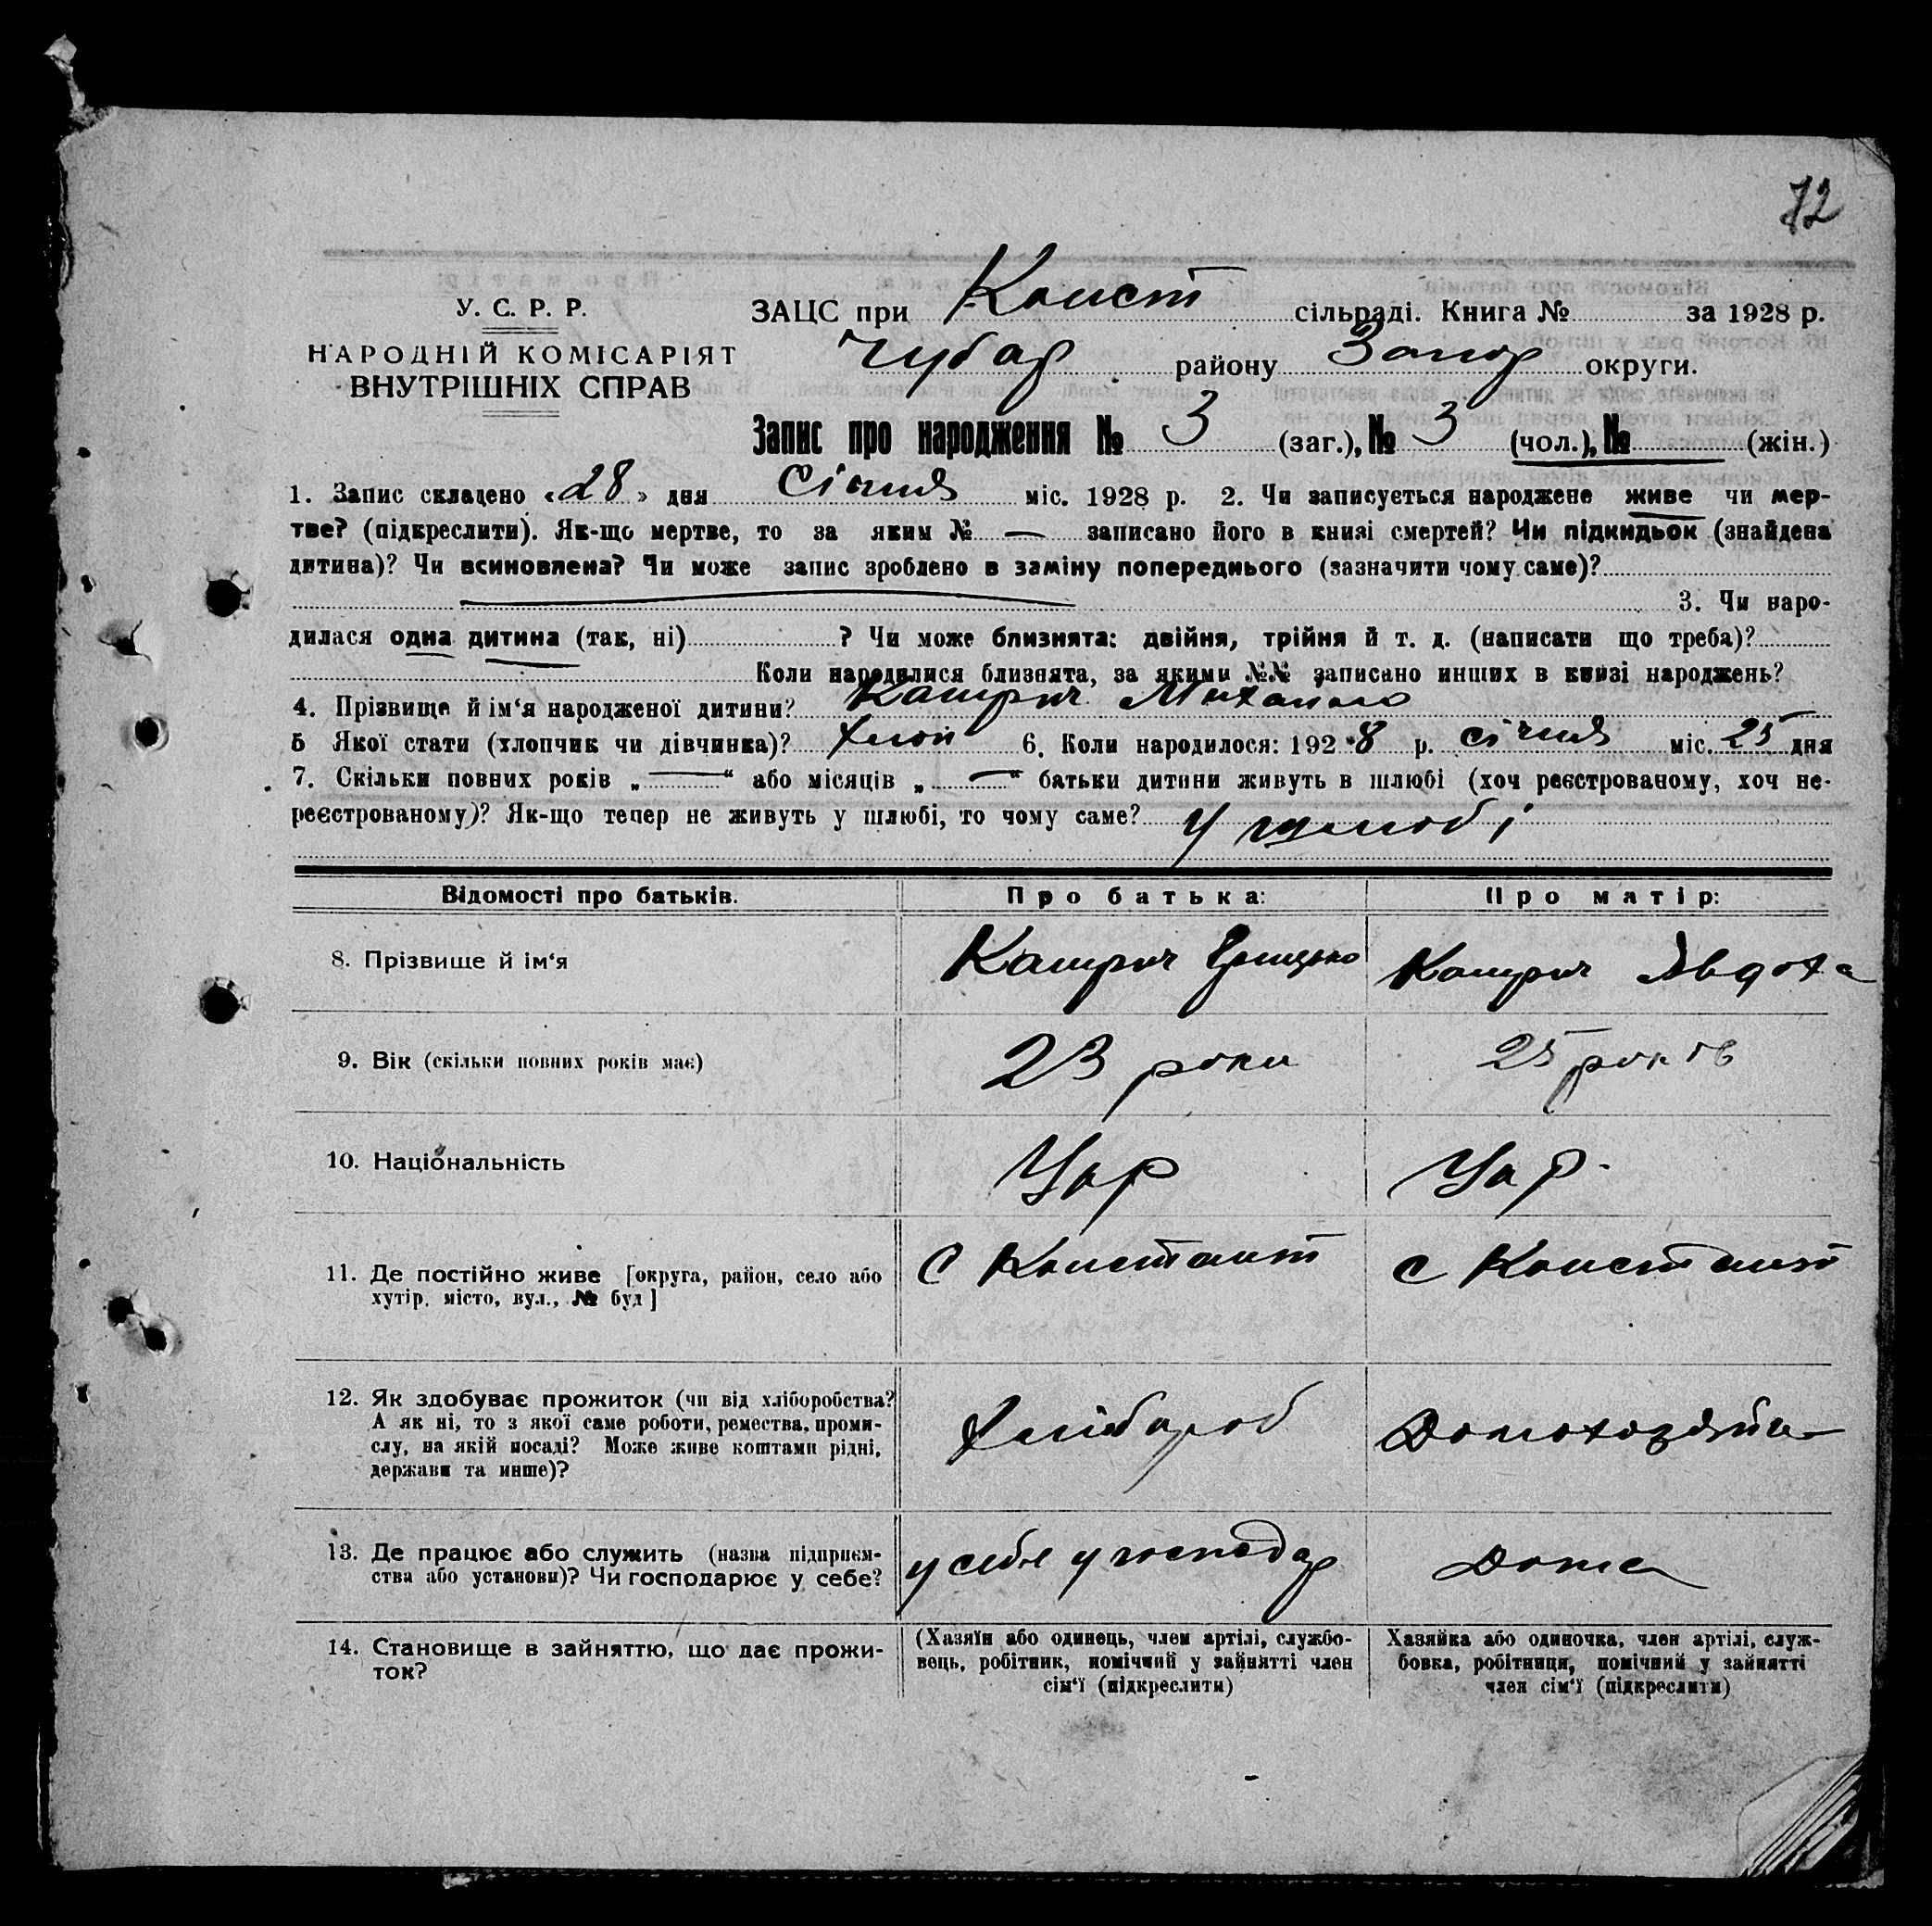 72
У. С. Р. Р.
НАРОДНІЙ КОМІСАРІЯТ
ВНУТРІШНІХ СПРАВ
ЗАЦС при Конст сільраді. Книга № за 1928 р.
Чубар району Запор округи.
Запис про народження № 3 (заг.), № 3 (чол.), № (жін.)
1. Запис складено «28» дня Січня міс. 1928 р. 2. Чи записується народжене живе чи мер-
тве? (підкреслити). Як-що мертве, то за яким № — записано його в книзі смертей? Чи підкидьок (знайдена
дитина)? Чи всиновлена? Чи може запис зроблено в заміну попереднього (зазначити чому саме)?
3. Чи наро-
дилася одна дитина (так, ні) ? Чи може близнята: двійня, трійня й т. д. (написати що треба)?
Коли народилися близнята, за якими №№ записано инших в книзі народжень?
4. Прізвище й ім‘я народженої дитини? Катрич Михайло
5 Якої стати (хлопчик чи дівчинка)? 6. Коли народилось: 1928 р. січня міс. 25 дня
7. Скільки повних років „—“ або місяців „—“ батьки дитини живуть в шлюбі (хоч реєстрованому, хоч не-
реєстрованому)? Як-що тепер не живуть у шлюбі, то чому саме? У шлюбі
Відомості про батьків. Про батька: Про матір:
8. Прізвище й ім‘я Катрич Грицько Катрич Явдоха
9. Вік (скільки повних років має) 23 роки 25 років
10. Національність Укр Укр.
11. Де постійно живе [округа, район, село або С Константт с Константт
хутір, місто, вул., № буд]
12. Як здобуває прожиток (чи від хліборобства? Хлібороб Домохозяйка
А як ні, то з якої саме роботи, ремества, проми-
слу, на якій посаді? Може живе коштами рідні,
держави та инше)?
13. Де працює або служить (назва підприєм- у себе у господар Дома
ства або установи)? Чи господарює у себе?
14. Становище в зайняттю, що дає прожи-
ток?
(Хазяїн або одинець, член артілі, службо-
вець, робітник, помічний у зайнятті член
сім‘ї (підкреслити)
Хазяйка або одиночка, член артілі, служ-
бовка, робітниця, помічний у зайнятті
член сім‘ї (підкреслити)